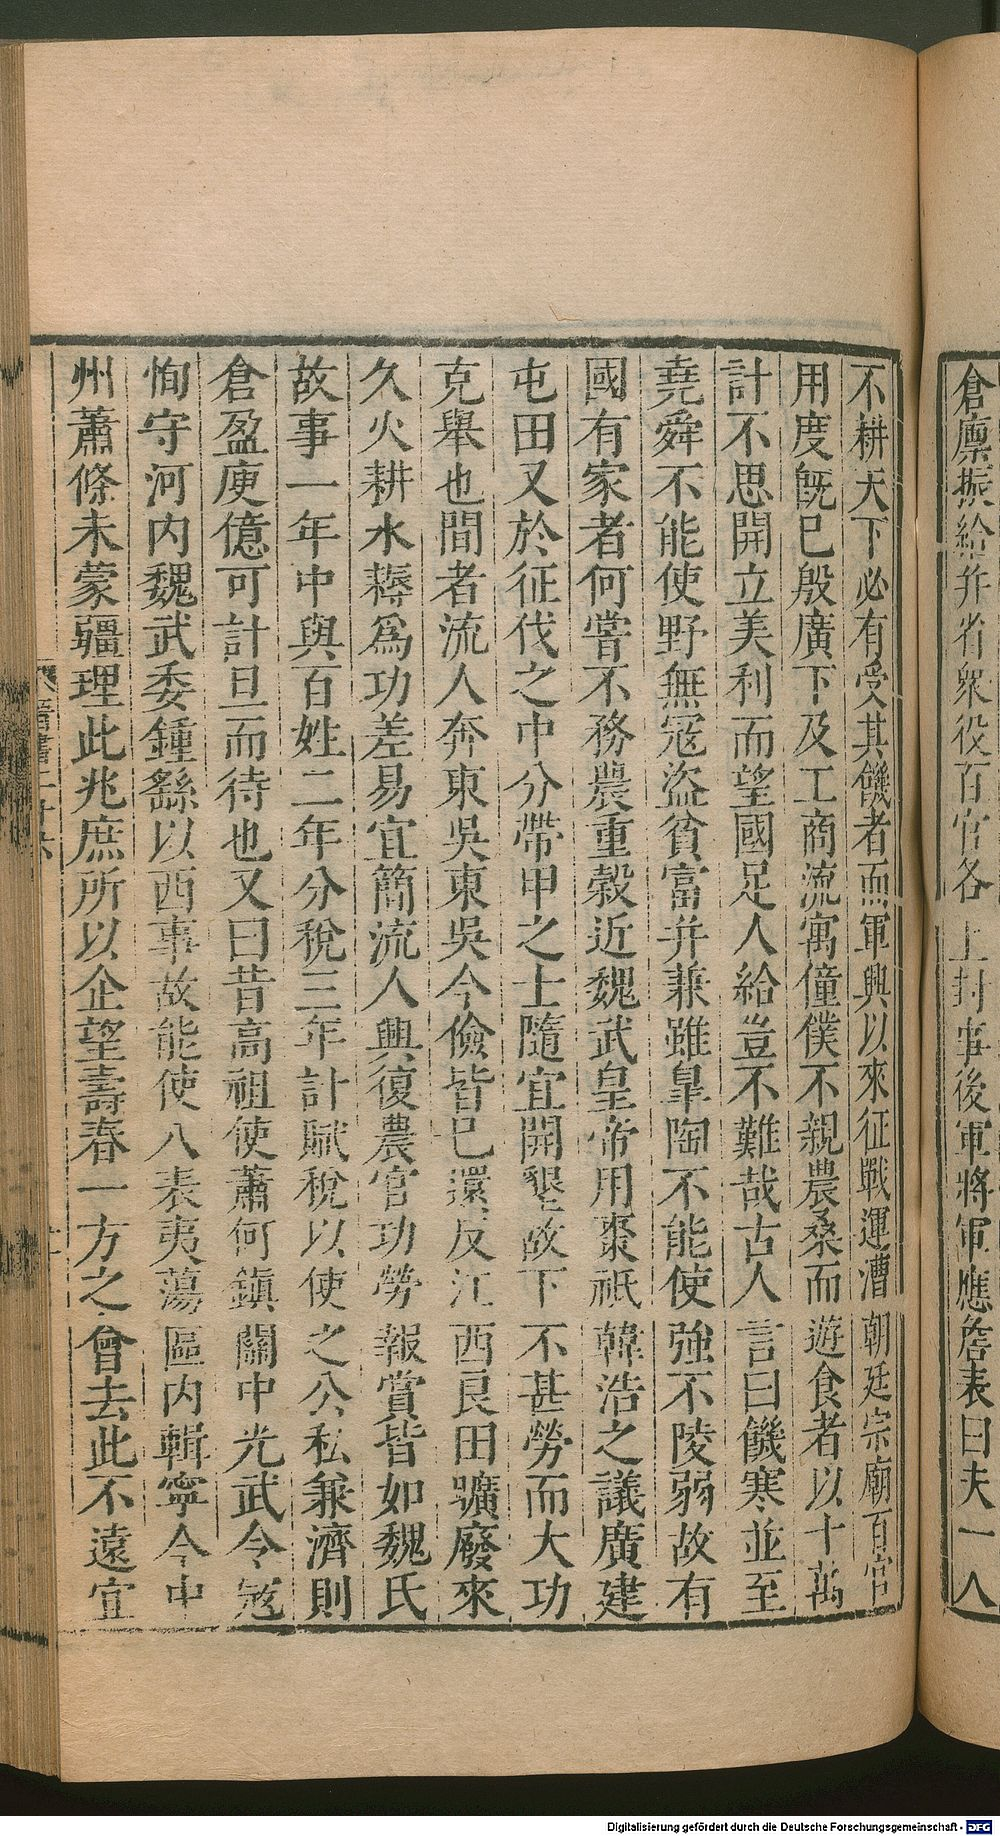 倉廩振給并省衆役百官各上封事後軍將軍應詹表曰夫一人
不耕天下必有受其饑者而軍興以來征戰運漕朝廷宗廟百官
用度旣已殷廣下及工商流寓僮僕不親農桑而遊食者以十萬
計不思開立美利而望國足人給豈不難哉古人言曰饑寒並至
堯舜不能使野無冦盜貧富并兼雖臯陶不能使強不陵弱故有
國有家者何嘗不務農重穀近魏武皇帝用棗祗韓浩之議廣建
屯田又於征伐之中分帶甲之士隨宜開墾故下不甚勞而大功
克舉也間者流人奔東吳東吳今儉皆已還反江西良田曠廢來
久火耕水耨爲功差易宜簡流人興復農官功勞報賞皆如魏氏
故事一年中與百姓二年分稅三年計賦稅以使之公私兼濟則
倉盈庾億可計旦而待也又曰昔高祖使蕭何鎭關中光武令冦
恂守河內魏武委鍾繇以西事故能使八表夷蕩區內輯寧今中
州蕭條未蒙疆理此兆庶所以企望壽春一方之會去此不遠宜
晉書二十六
Digitalisierung gefördert durch die Deutsche Forschungsgemeinschaft - DFG